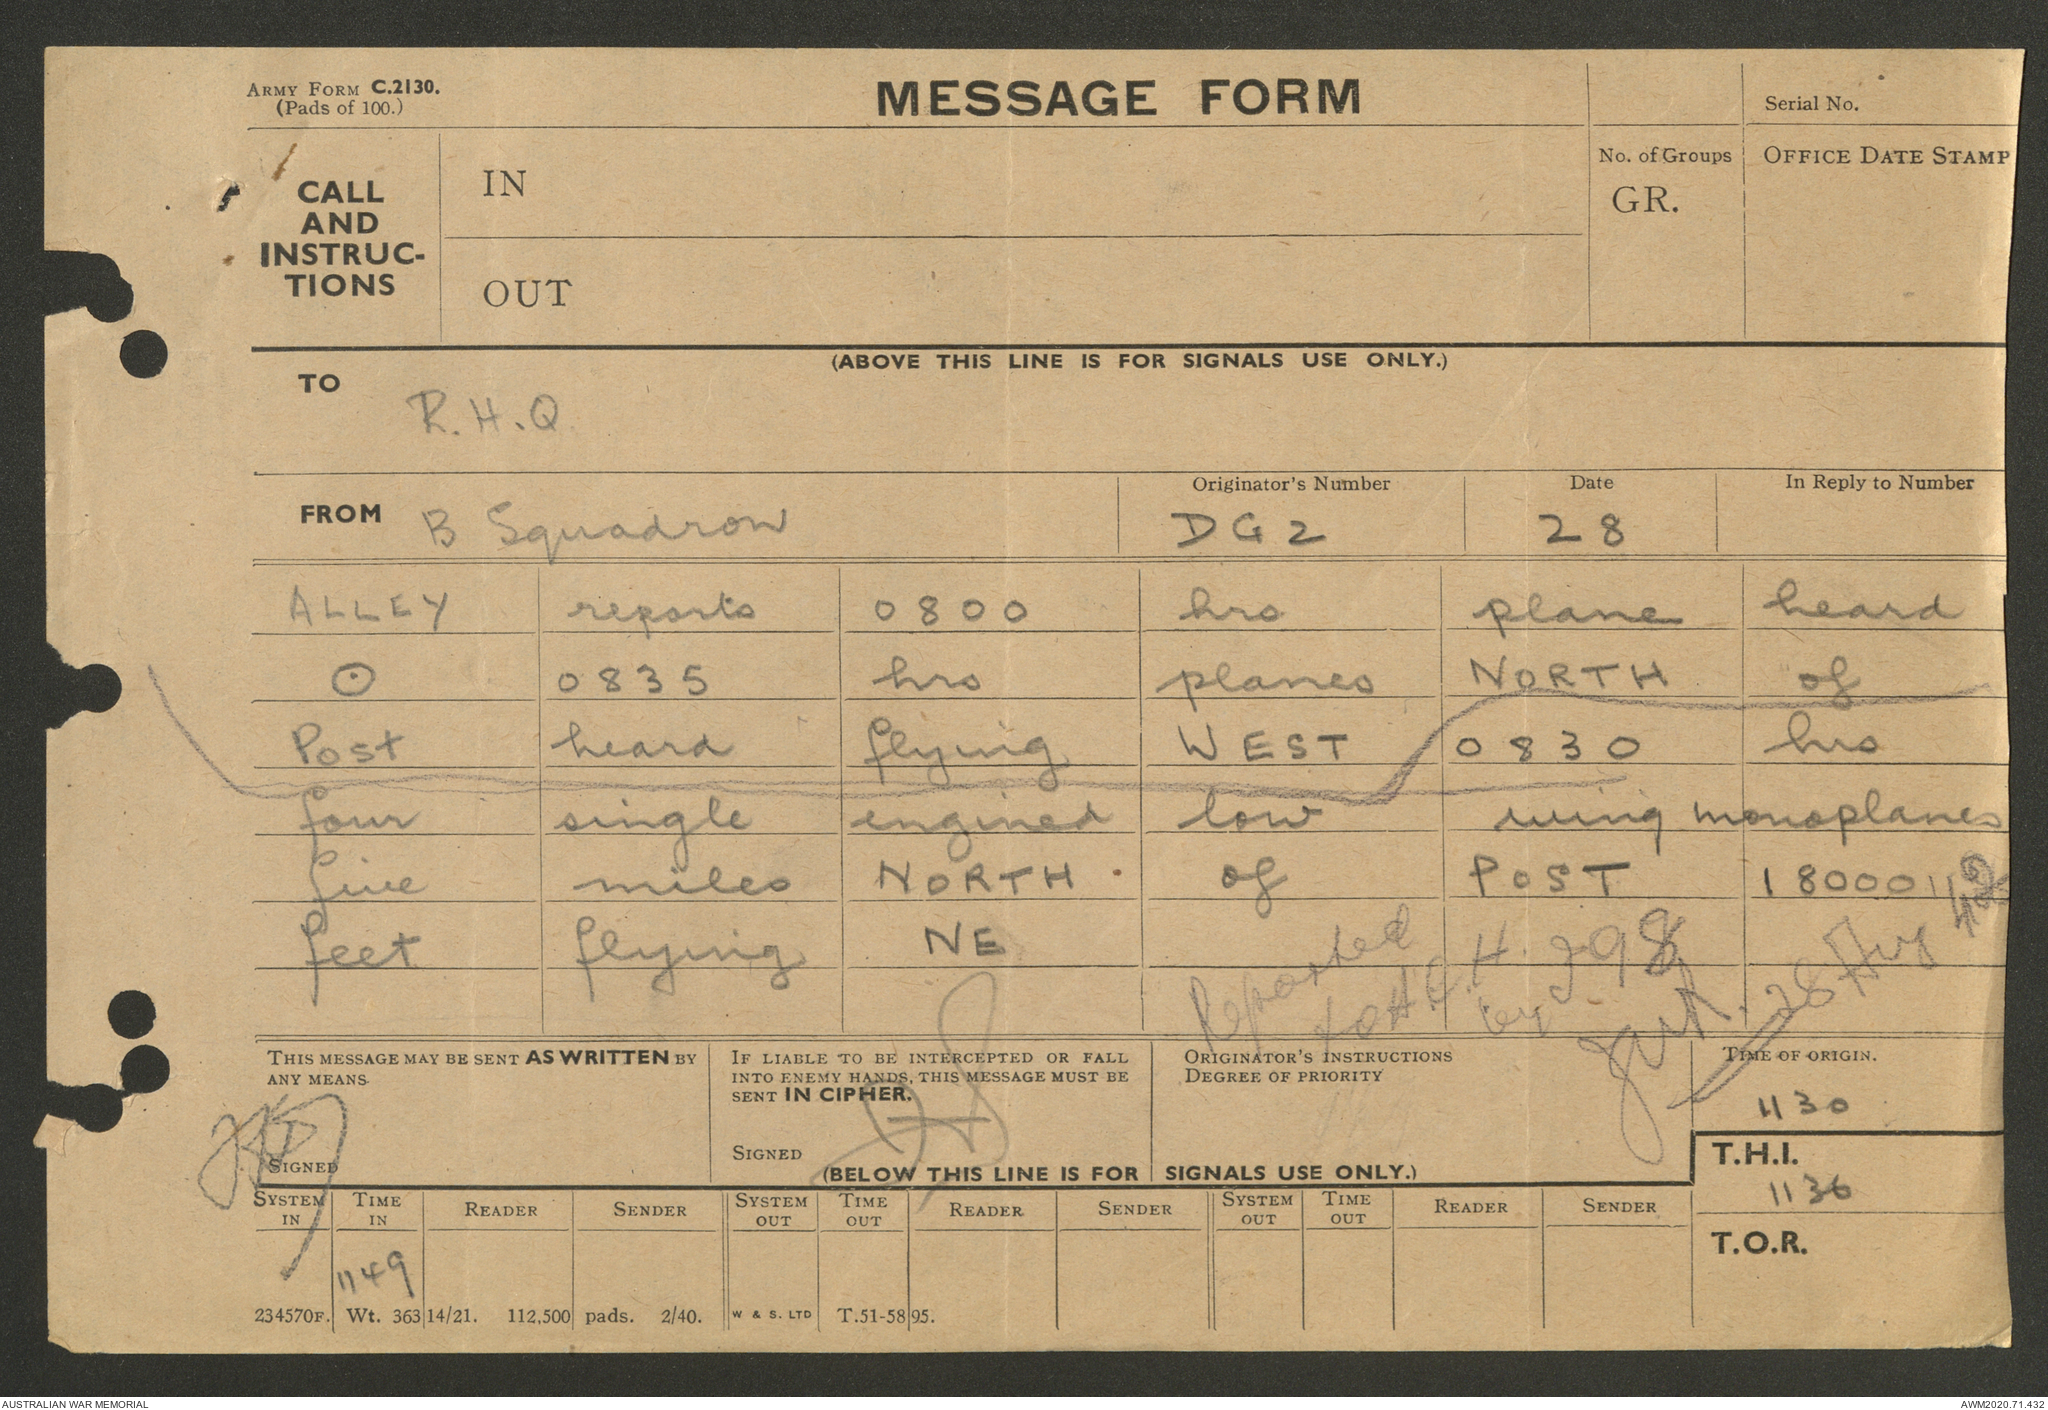 ARMY FORM C.2130.
(Pads of 100.)
MESSAGE FORM
Serial No.
CALL
AND
INSTRUC-
TIONS
IN
OUT
No. of Groups
GR.
OFFICE DATE STAMP
(ABOVE THIS LINE IS FOR SIGNALS USE ONLY.)
TO
R.H.Q.
FROM B Squadron
Originator's Number
DG2
Date
28
In Reply to Number
ALLEY reports 0800 hrs plane heard
⊙ 0835 hrs planes NORTH of
Post heard flying WEST 0830 hrs
four single engined low wing monoplanes
five miles NORTH of POST 18000
feet flying NE
Reported
by
28 Aug 42
1142
THIS MESSAGE MAY BE SENT AS WRITTEN BY
ANY MEANS.
SIGNED
IF LIABLE TO BE INTERCEPTED OR FALL
INTO ENEMY HANDS, THIS MESSAGE MUST BE
SENT IN CIPHER.
SIGNED
ORIGINATOR'S INSTRUCTIONS
DEGREE OF PRIORITY
TIME OF ORIGIN.
1130
T.H.I.
1136
T.O.R.
(BELOW THIS LINE IS FOR SIGNALS USE ONLY.)
SYSTEM IN TIME IN READER SENDER SYSTEM OUT TIME OUT READER SENDER SYSTEM OUT TIME OUT READER SENDER
1149
234570F. Wt. 36314/21. 112,500 pads. 2/40. W & S. LTD T.51-5895.
AUSTRALIAN WAR MEMORIAL
AWM2020.71.432